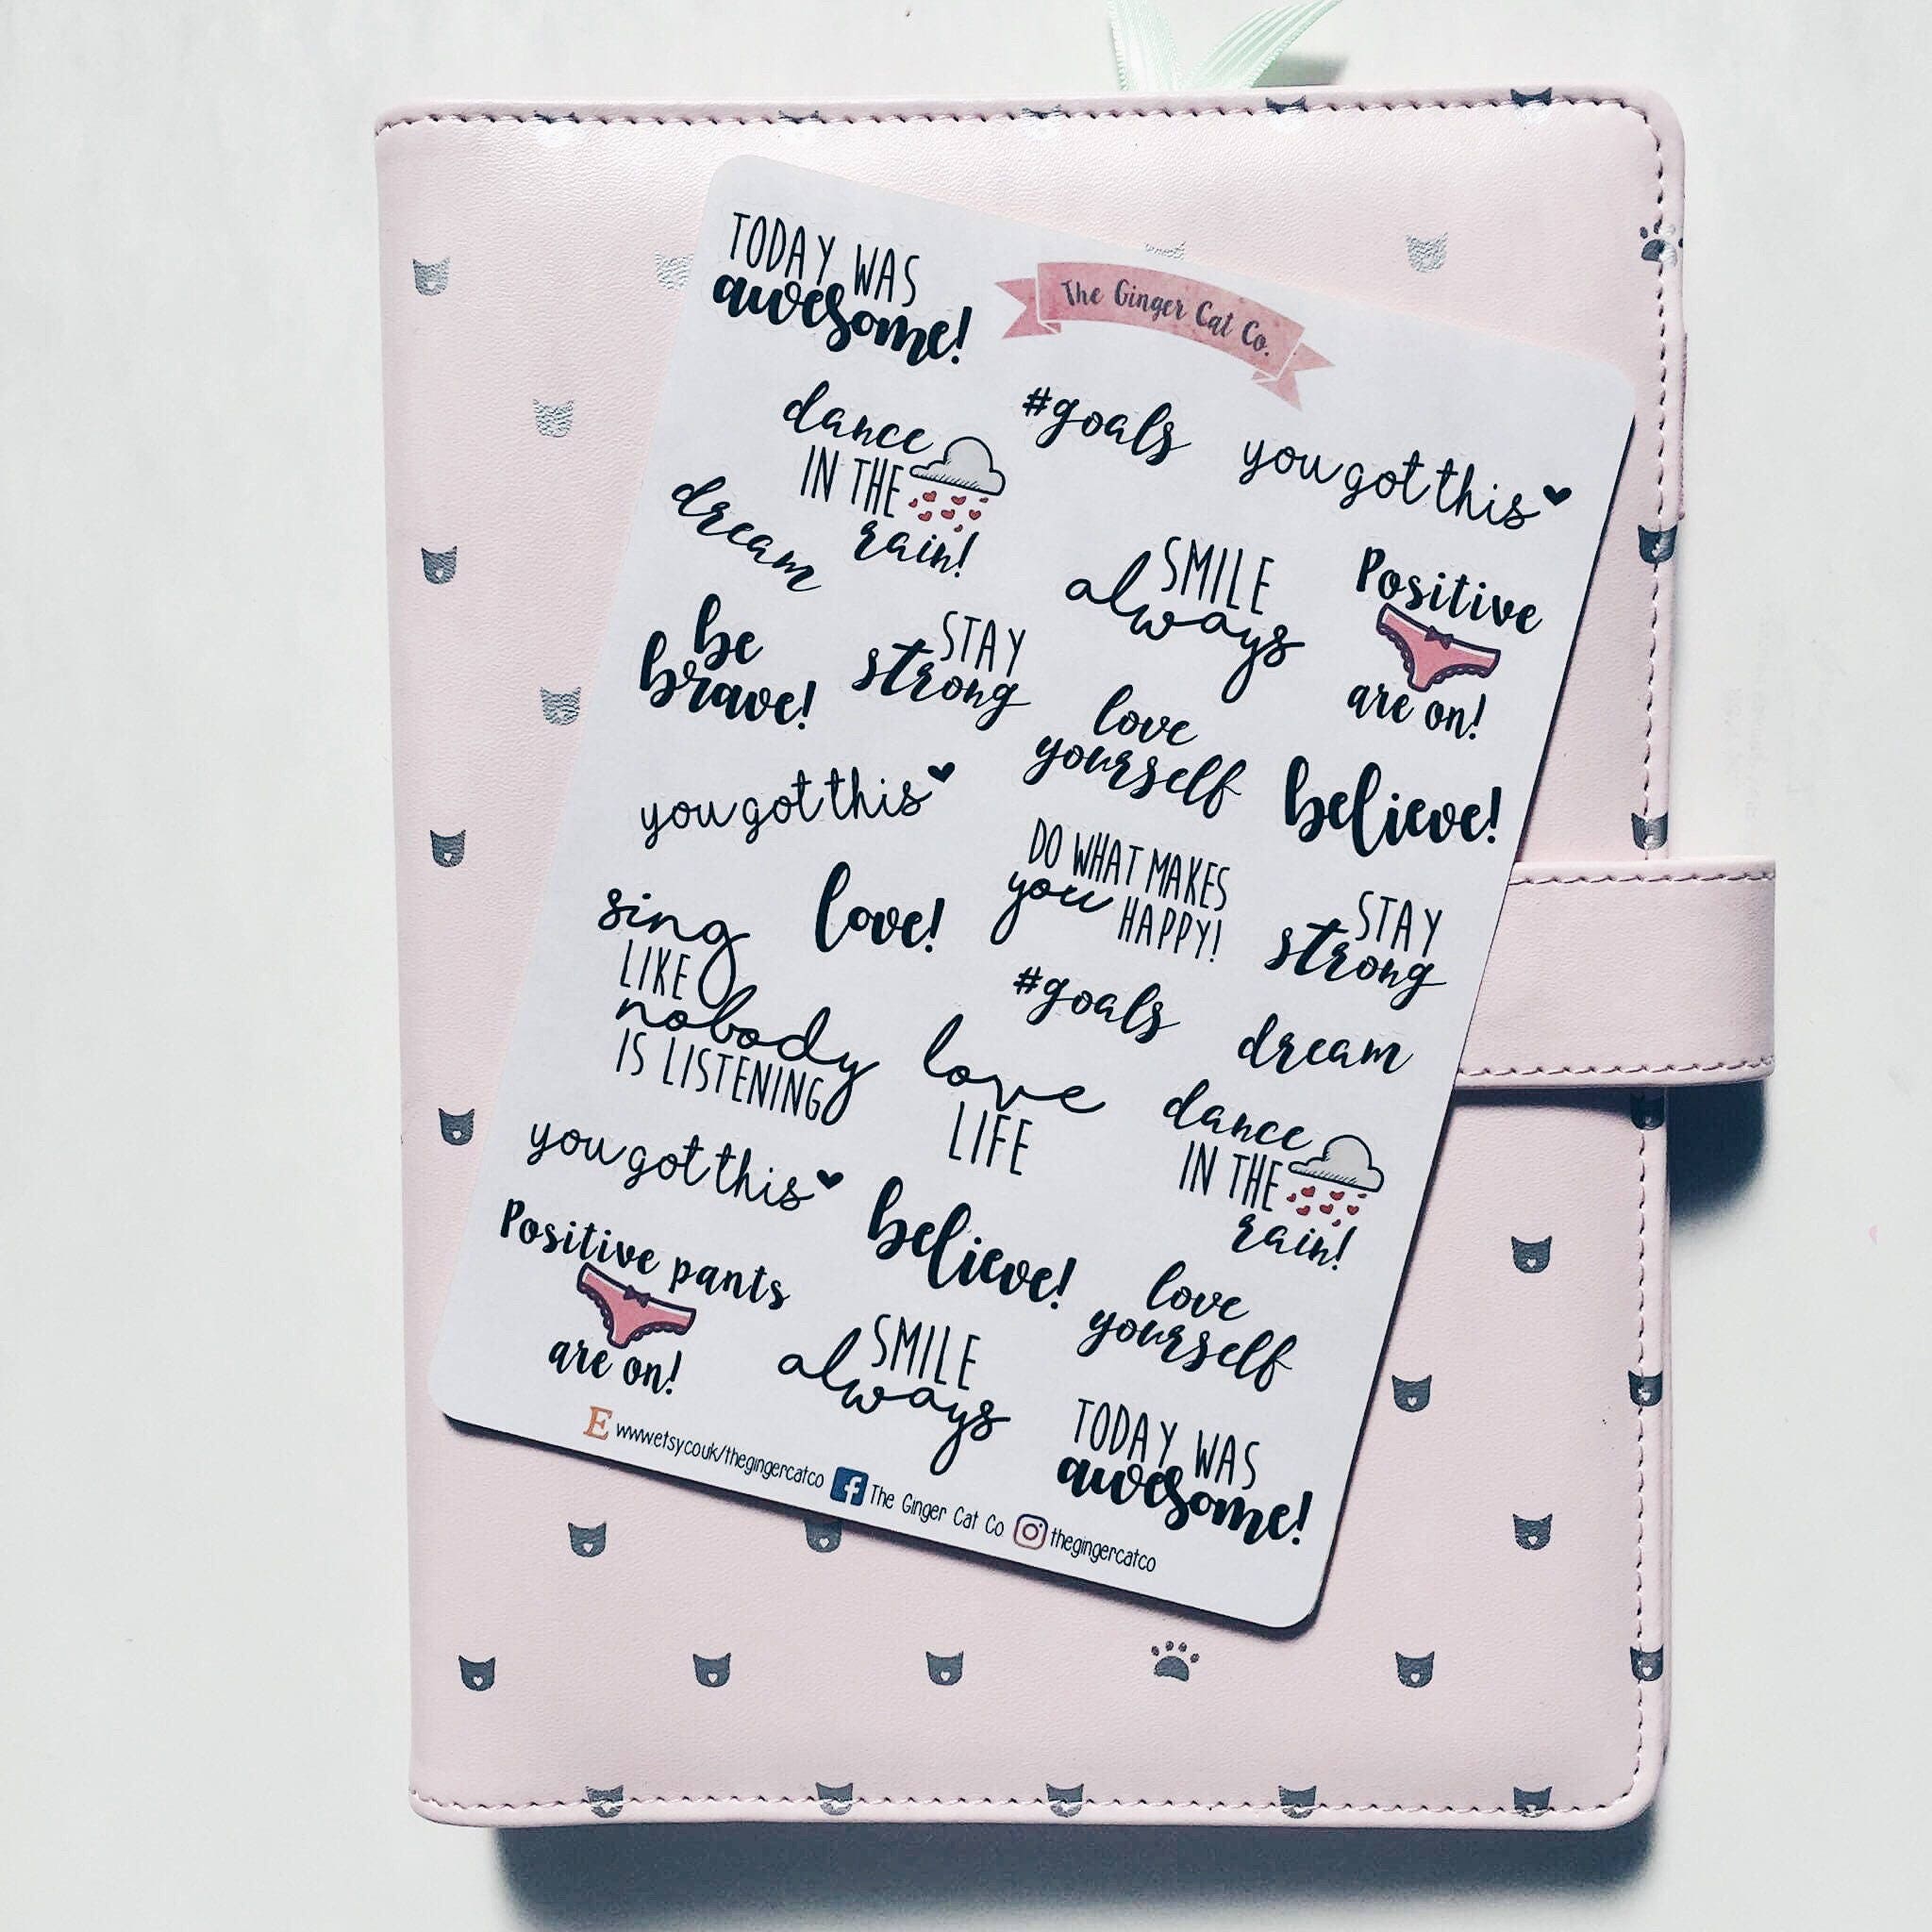 TODAY WAS
awesome!
The Ginger Cat Co.
dance
IN THE
rain!
#goals
you got this
dream
SMILE
always
Positive
are on!
be
brave!
STAY
strong
love
yourself
you got this
believe!
DO WHAT MAKES
you HAPPY!
sing
LIKE
nobody
IS LISTENING
love!
STAY
strong
#goals
dream
love
LIFE
dance
IN THE
rain!
you got this
believe!
Positive pants
are on!
love
yourself
SMILE
always
TODAY WAS
awesome!
E www.etsy.co.uk/thegingercatco f The Ginger Cat Co thegingercatco